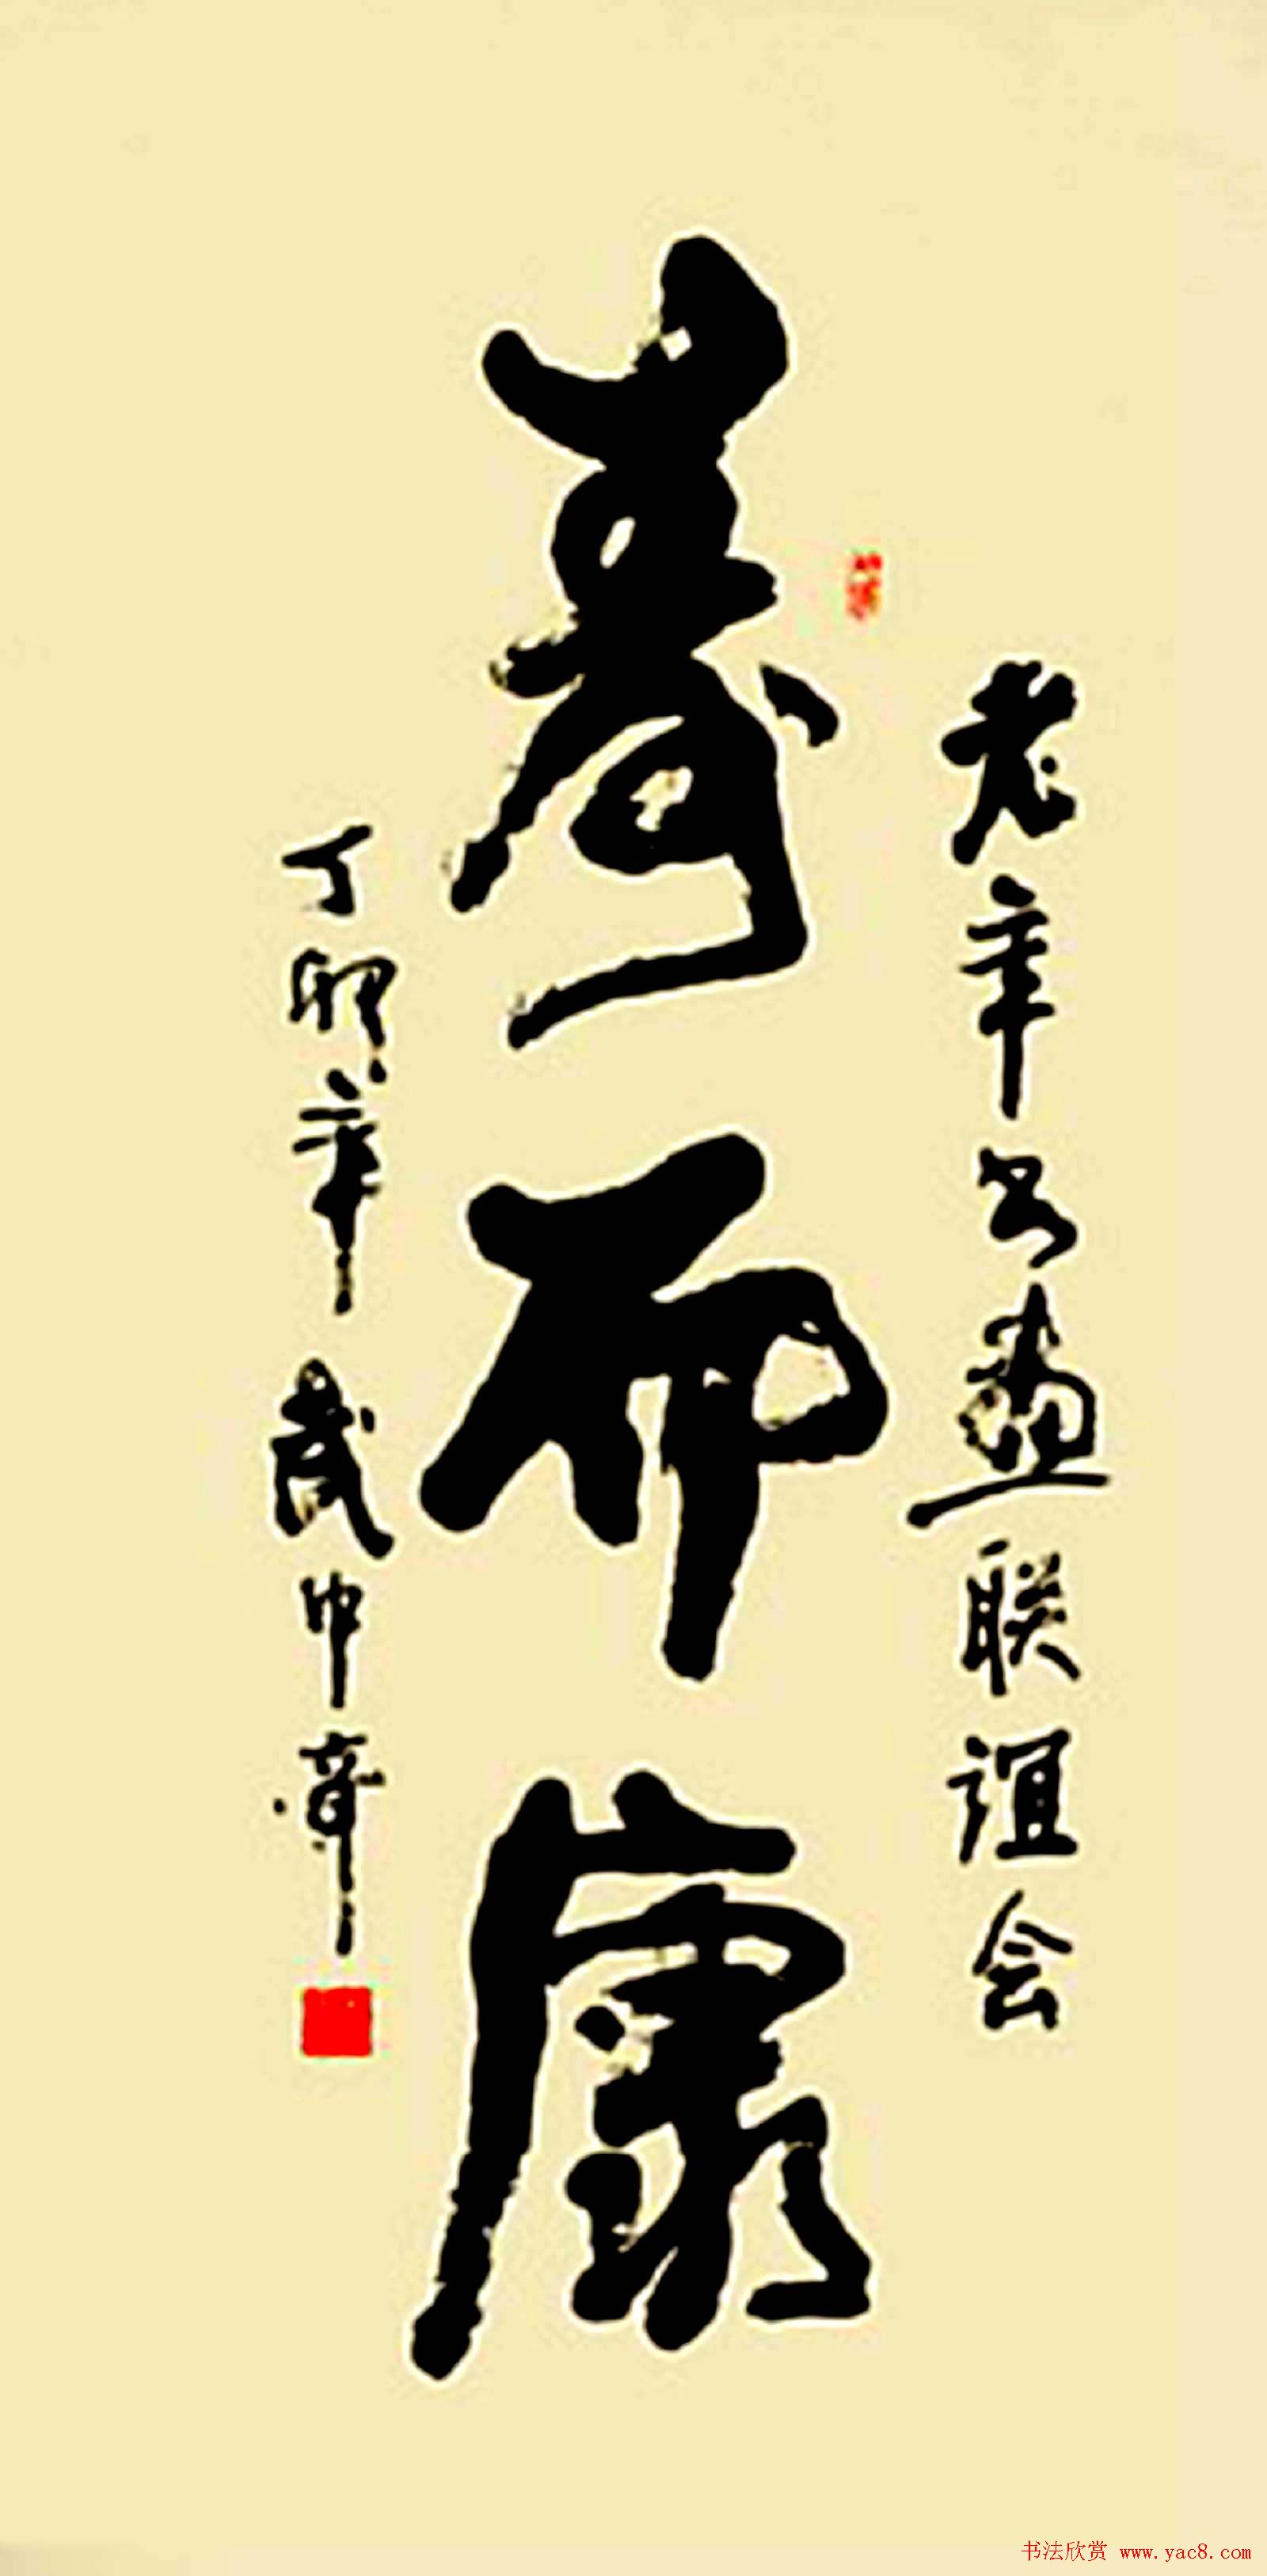 老年书畫联谊会
壽而康
丁卯年 武中奇
书法欣赏 www.yac8.com